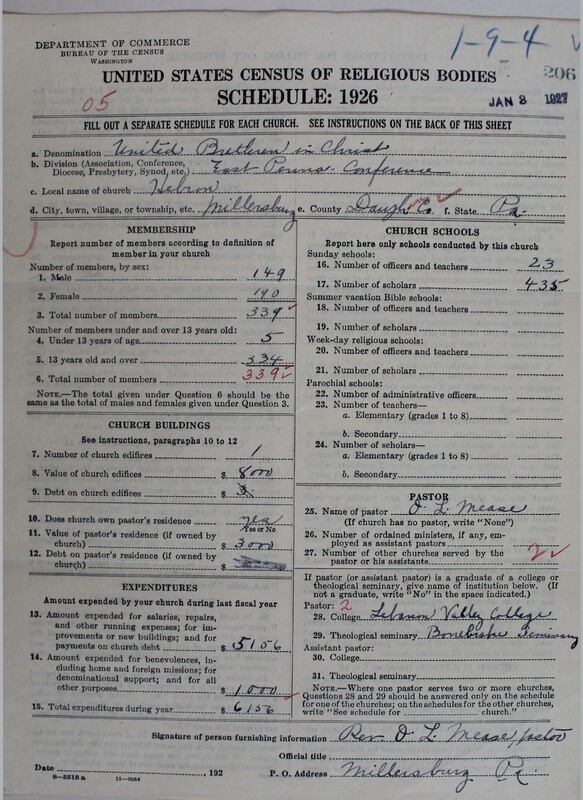 DEPARTMENT OF COMMERCE
BUREAU OF THE CENSUS
WASHINGTON
1-9-4
206
UNITED STATES CENSUS OF RELIGIOUS BODIES
05
SCHEDULE: 1926
JAN 8 1927
FILL OUT A SEPARATE SCHEDULE FOR EACH CHURCH. SEE INSTRUCTIONS ON THE BACK OF THIS SHEET
a. Denomination United Brethren in Christ
b. Division (Association, Conference, Diocese, Presbytery, Synod, etc.) East Penna. Conference
c. Local name of church Hebron
d. City, town, village, or township, etc. Millersburg e. County Dauph. Co. f. State Pa.
MEMBERSHIP
Report number of members according to definition of
member in your church
Number of members, by sex:
1. Male 149
2. Female 190
3. Total number of members 339
Number of members under and over 13 years old:
4. Under 13 years of age 5
5. 13 years old and over 334
6. Total number of members 339
NOTE.—The total given under Question 6 should be
same as the total of males and females given under Question 3.
CHURCH BUILDINGS
See instructions, paragraphs 10 to 12
7. Number of church edifices 1
8. Value of church edifices $ 8000
9. Debt on church edifices $
10. Does church own pastor's residence yes
Yes or No
11. Value of pastor's residence (if owned by
church) $ 3000
12. Debt on pastor's residence (if owned by
church) $
EXPENDITURES
Amount expended by your church during last fiscal year
13. Amount expended for salaries, repairs,
and other running expenses; for im-
provements or new buildings; and for
payments on church debt $ 5156
14. Amount expended for benevolences,
including home and foreign missions; for
denominational support; and for all
other purposes $ 1000
15. Total expenditures during year $ 6156
CHURCH SCHOOLS
Report here only schools conducted by this church
Sunday schools:
16. Number of officers and teachers 23
17. Number of scholars 435
Summer vacation Bible schools:
18. Number of officers and teachers
19. Number of scholars
Week-day religious schools:
20. Number of officers and teachers
21. Number of scholars
Parochial schools:
22. Number of administrative officers
23. Number of teachers—
a. Elementary (grades 1 to 8)
b. Secondary
24. Number of scholars—
a. Elementary (grades 1 to 8)
b. Secondary
PASTOR
25. Name of pastor O. L. Mease
(If church has no pastor, write "None")
26. Number of ordained ministers, if any, em-
ployed as assistant pastors
27. Number of other churches served by the
pastor or his assistants 2
If pastor (or assistant pastor) is a graduate of a college or
theological seminary, give name of institution below. (If
not a graduate, write "No" in the space indicated.)
Pastor: 2
28. College Lebanon Valley College
29. Theological seminary Bonebrake Seminary
Assistant pastor:
30. College
31. Theological seminary
NOTE.—Where one pastor serves two or more churches,
Questions 28 and 29 should be answered only on the schedule
for one of the churches; on the schedules for the other churches,
write "See schedule for church."
Signature of person furnishing information Rev. O. L. Mease, pastor
Official title
Date , 192 P. O. Address Millersburg Pa.
8-5518 a 11-9054